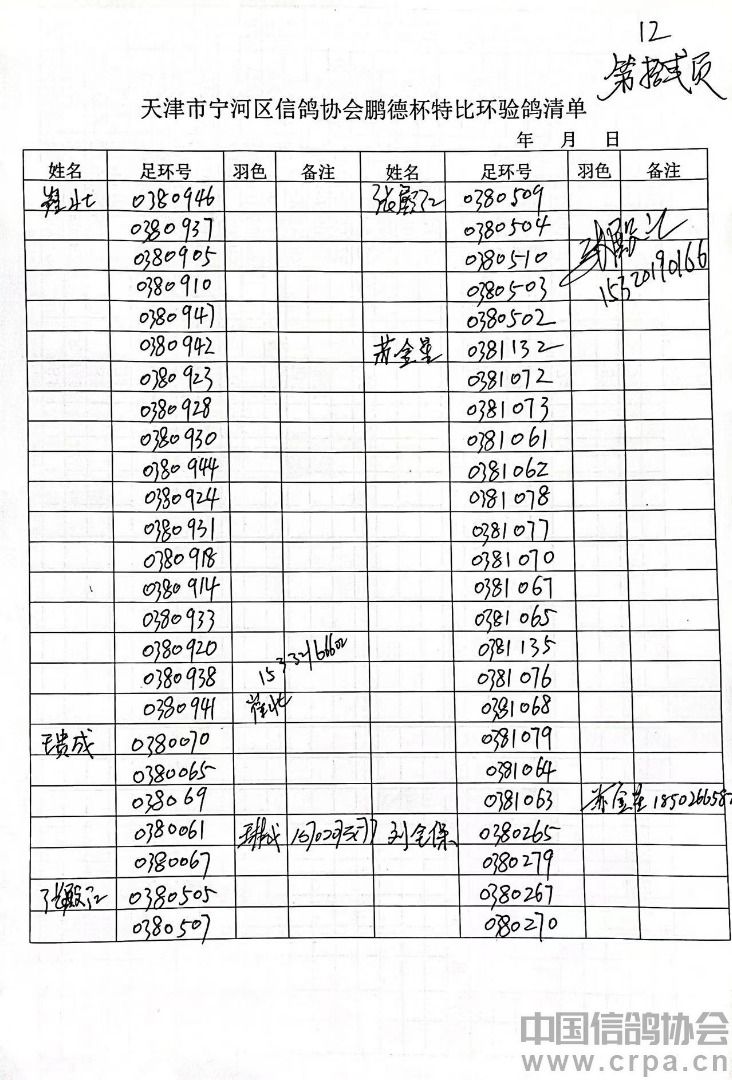 12
第拾贰页
天津市宁河区信鸽协会鹏德杯特比环验鸽清单
年 月 日
姓名 足环号 羽色 备注 姓名 足环号 羽色 备注
0380946 0380509
0380937 0380504
0380905 0380510
0380910 0380503 15320190166
0380947 0380502
0380942 苏金星 0381132
0380923 0381072
0380928 0381073
0380930 0381061
0380944 0381062
0380924 0381078
0380931 0381077
0380918 0381070
0380914 0381067
0380933 0381065
0380920 0381135
0380938 0381076
0380941 0381068
王贵成 0380070 0381079
0380065 0381064
038069 0381063 苏金星
0380061 刘全保 0380265
0380067 0380279
0380505 0380267
0380507 0380270
中国信鸽协会
www.crpa.cn